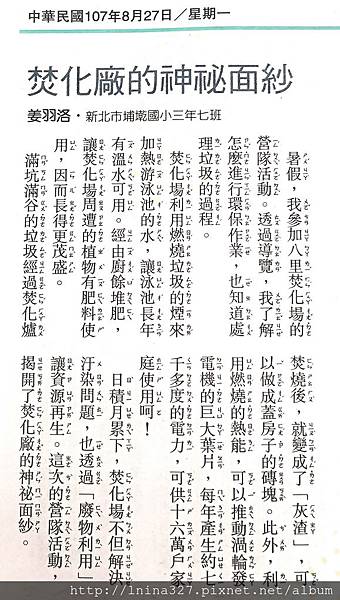 中華民國107年8月27日／星期一
焚化廠的神祕面紗
姜羽洛・新北市埔墘國小三年七班
暑假，我參加八里焚化場的
營隊活動。透過導覽，我了解
怎麼進行環保作業，也知道處
理垃圾的過程。
焚化場利用燃燒垃圾的煙來
加熱游泳池的水，讓泳池長年
有溫水可用。經由廚餘堆肥，
讓焚化場周遭的植物有肥料使
用，因而長得更茂盛。
滿坑滿谷的垃圾經過焚化爐
焚燒後，就變成了「灰渣」，可
以做成蓋房子的磚塊。此外，利
用燃燒的熱能，可以推動渦輪發
電機的巨大葉片，每年產生約七
千多度的電力，可供十六萬戶家
庭使用呵！
日積月累下，焚化場不但解決
汙染問題，也透過「廢物利用」
讓資源再生。這次的營隊活動，
揭開了焚化廠的神祕面紗。
http://1nina327.pixnet.net/album